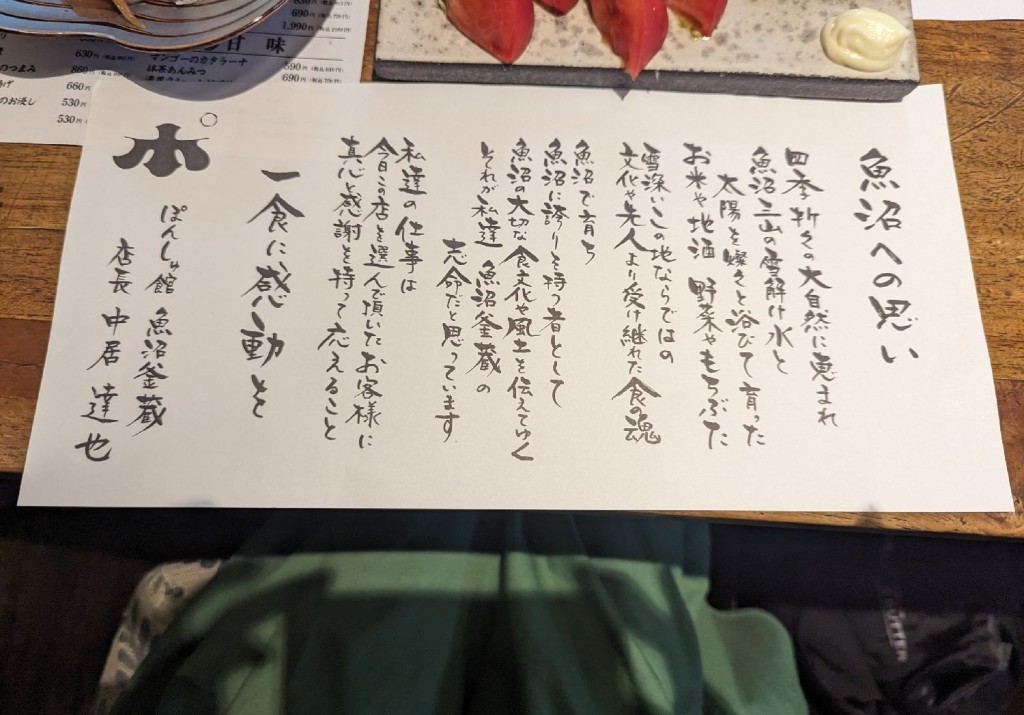 魚沼への思い
四季折々の大自然に恵まれ
魚沼三山の雪解け水と
太陽を燦々と浴びて育った
お米や地酒 野菜やもちぶた
雪深いこの地ならではの
文化や先人より受け継れた食の魂
魚沼で育ち
魚沼に誇りを持つ者として
魚沼の大切な食文化や風土を伝えてゆく
それが私達 魚沼釜蔵の
志命だと思っています
私達の仕事は
今日この店を選んで頂いたお客様に
真心と感謝を持って応えること
一食に、感動を
ぽんしゅ館 魚沼釜蔵
店長 中居 達也
甘味
マンゴーのカタラーナ
590円
抹茶あんみつ
690円
690円
1,990円
630円
のつまみ
860円
660円
のお浸し
530円
530円